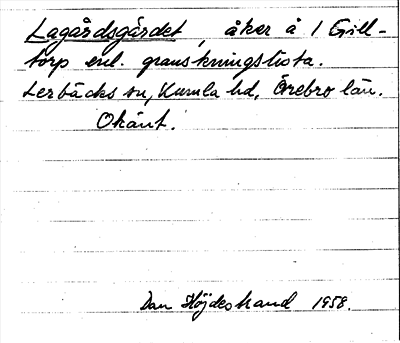 Lagårdsgärdet, åker å 1 Grill-
torp enl. granskningslista.
Lerbäcks sn, Kumla hd, Örebro län.
Okänt.
Dan Höjdestrand 1958.